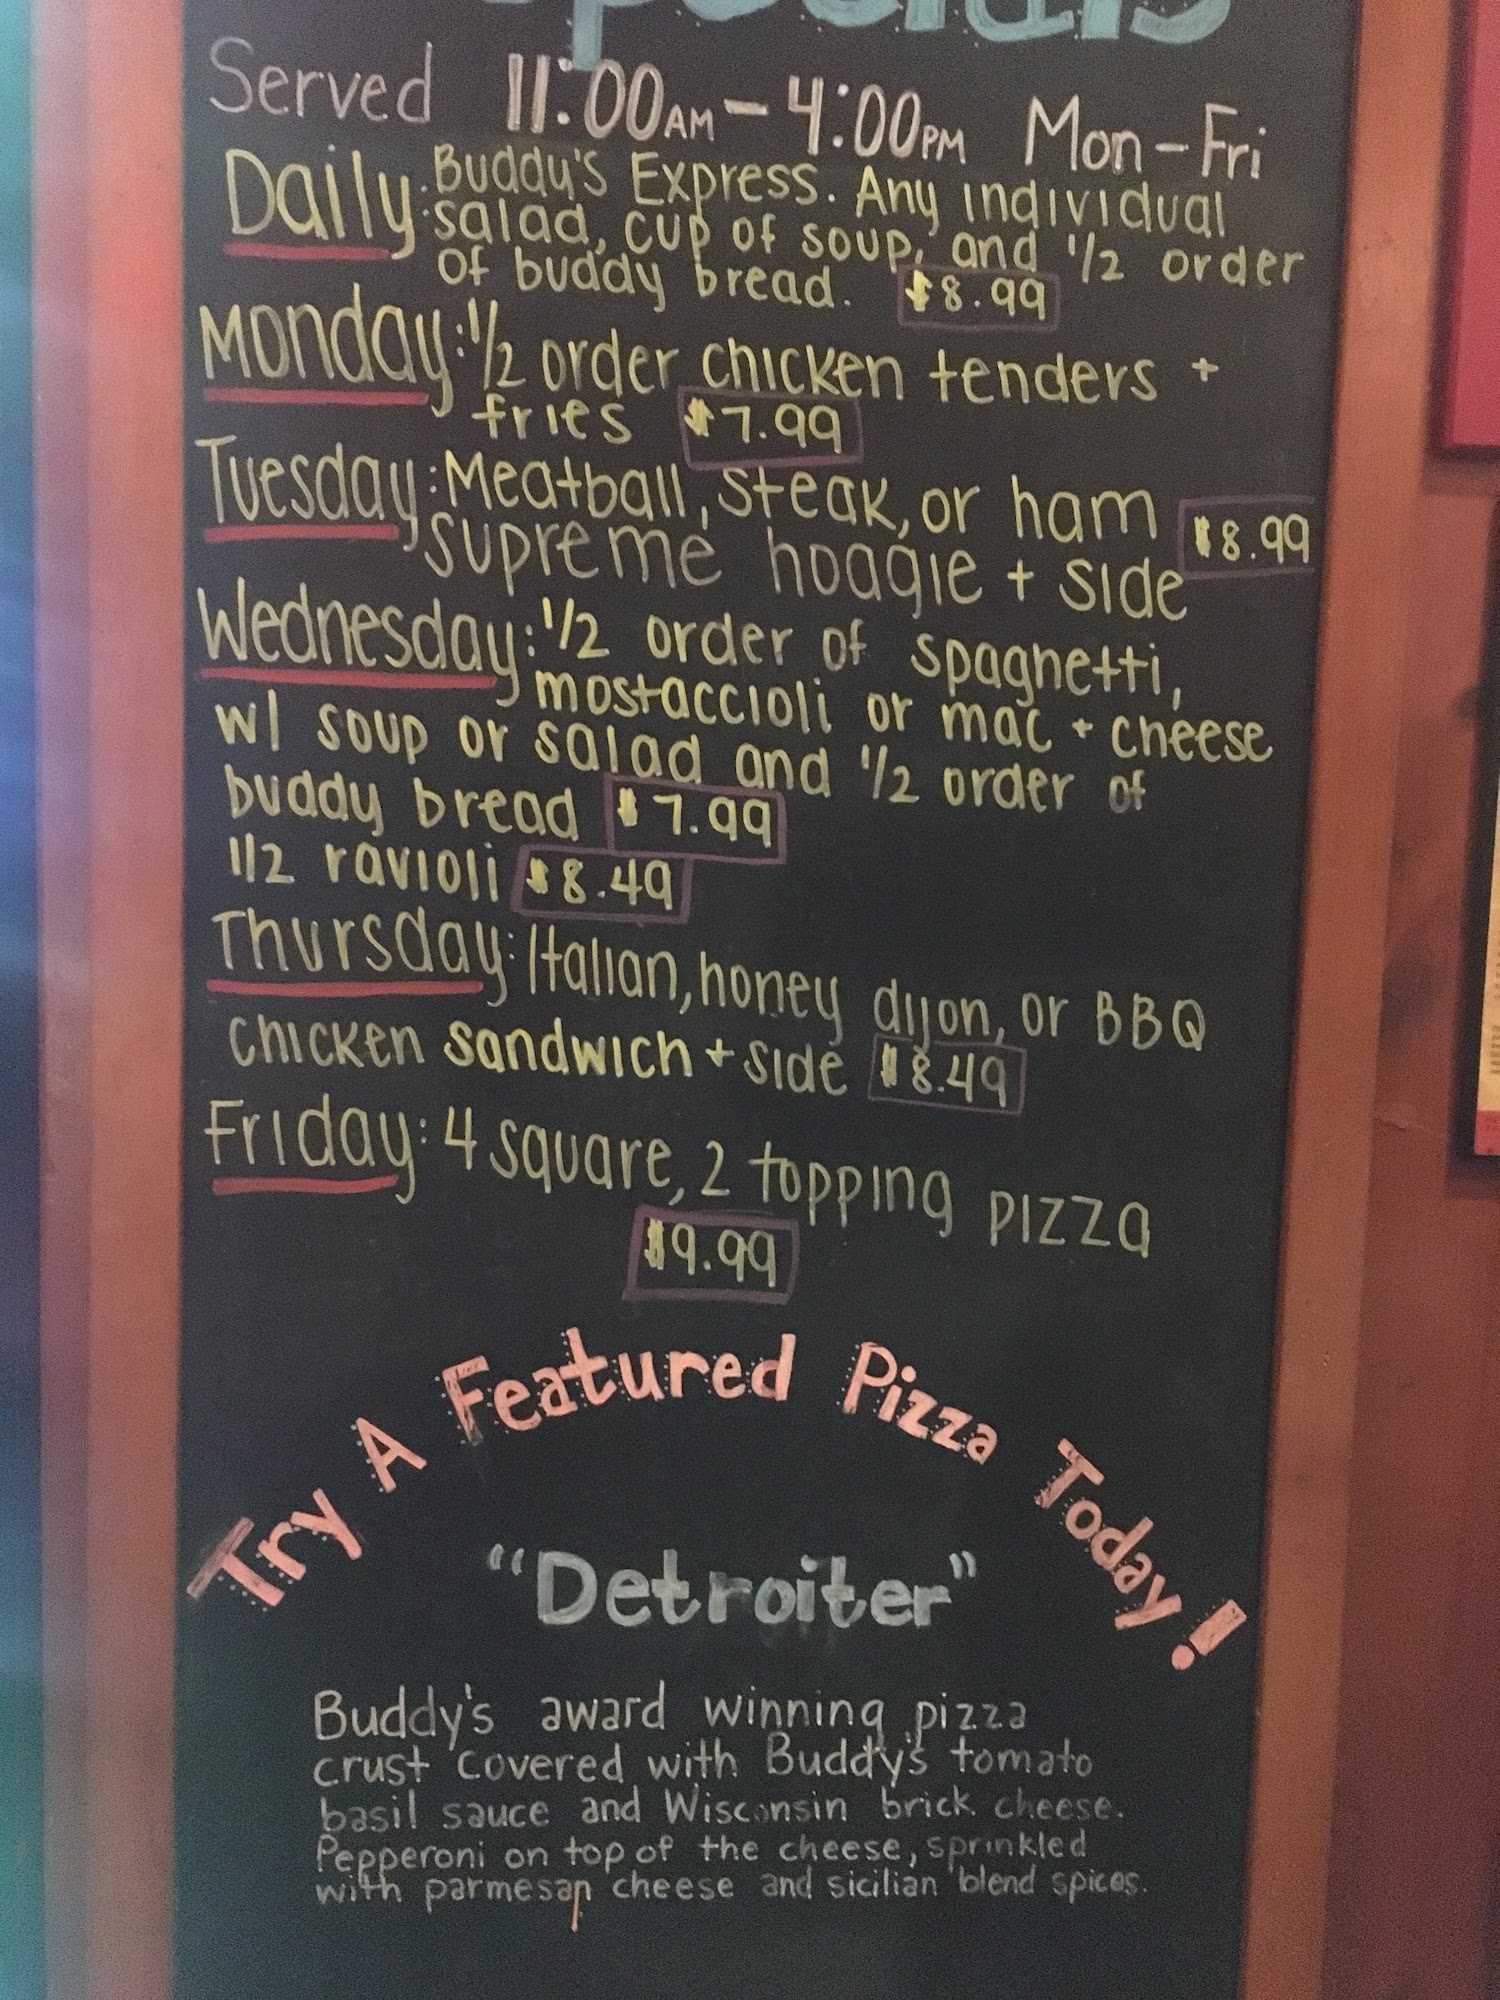 Specials
Served 11:00AM - 4:00PM Mon - Fri
Daily: Buddy's Express. Any individual
salad, cup of soup, and 1/2 order
of buddy bread. $8.99
Monday: 1/2 order chicken tenders +
fries $7.99
Tuesday: Meatball, steak, or ham
supreme hoagie + side $8.99
Wednesday: 1/2 order of spaghetti,
mostaccioli or mac + cheese
w/ soup or salad and 1/2 order of
buddy bread $7.99
1/2 ravioli $8.49
Thursday: Italian, honey dijon, or BBQ
chicken sandwich + side $8.49
Friday: 4 square, 2 topping pizza
$9.99
Try A Featured Pizza Today!
"Detroiter"
Buddy's award winning pizza
crust covered with Buddy's tomato
basil sauce and Wisconsin brick cheese.
Pepperoni on top of the cheese, sprinkled
with parmesan cheese and sicilian blend spices.